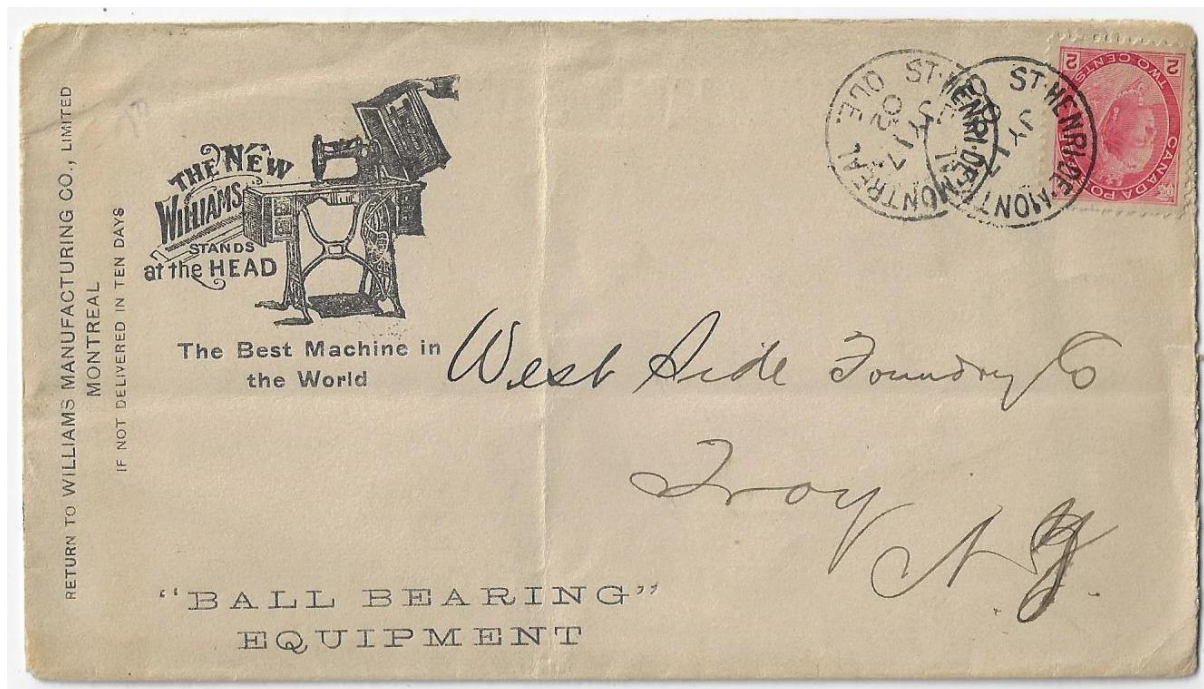 RETURN TO WILLIAMS MANUFACTURING CO., LIMITED
MONTREAL
IF NOT DELIVERED IN TEN DAYS
THE NEW
WILLIAMS
STANDS
at the HEAD
The Best Machine in
the World
ST·HENRI·DE·MONTREAL QUE.
JY 17
02
ST·HENRI·DE·MONT
JY 17
2 TWO CENTS 2
CANADA PO
West Side Foundry Co
Troy
N.Y.
“BALL BEARING”
EQUIPMENT